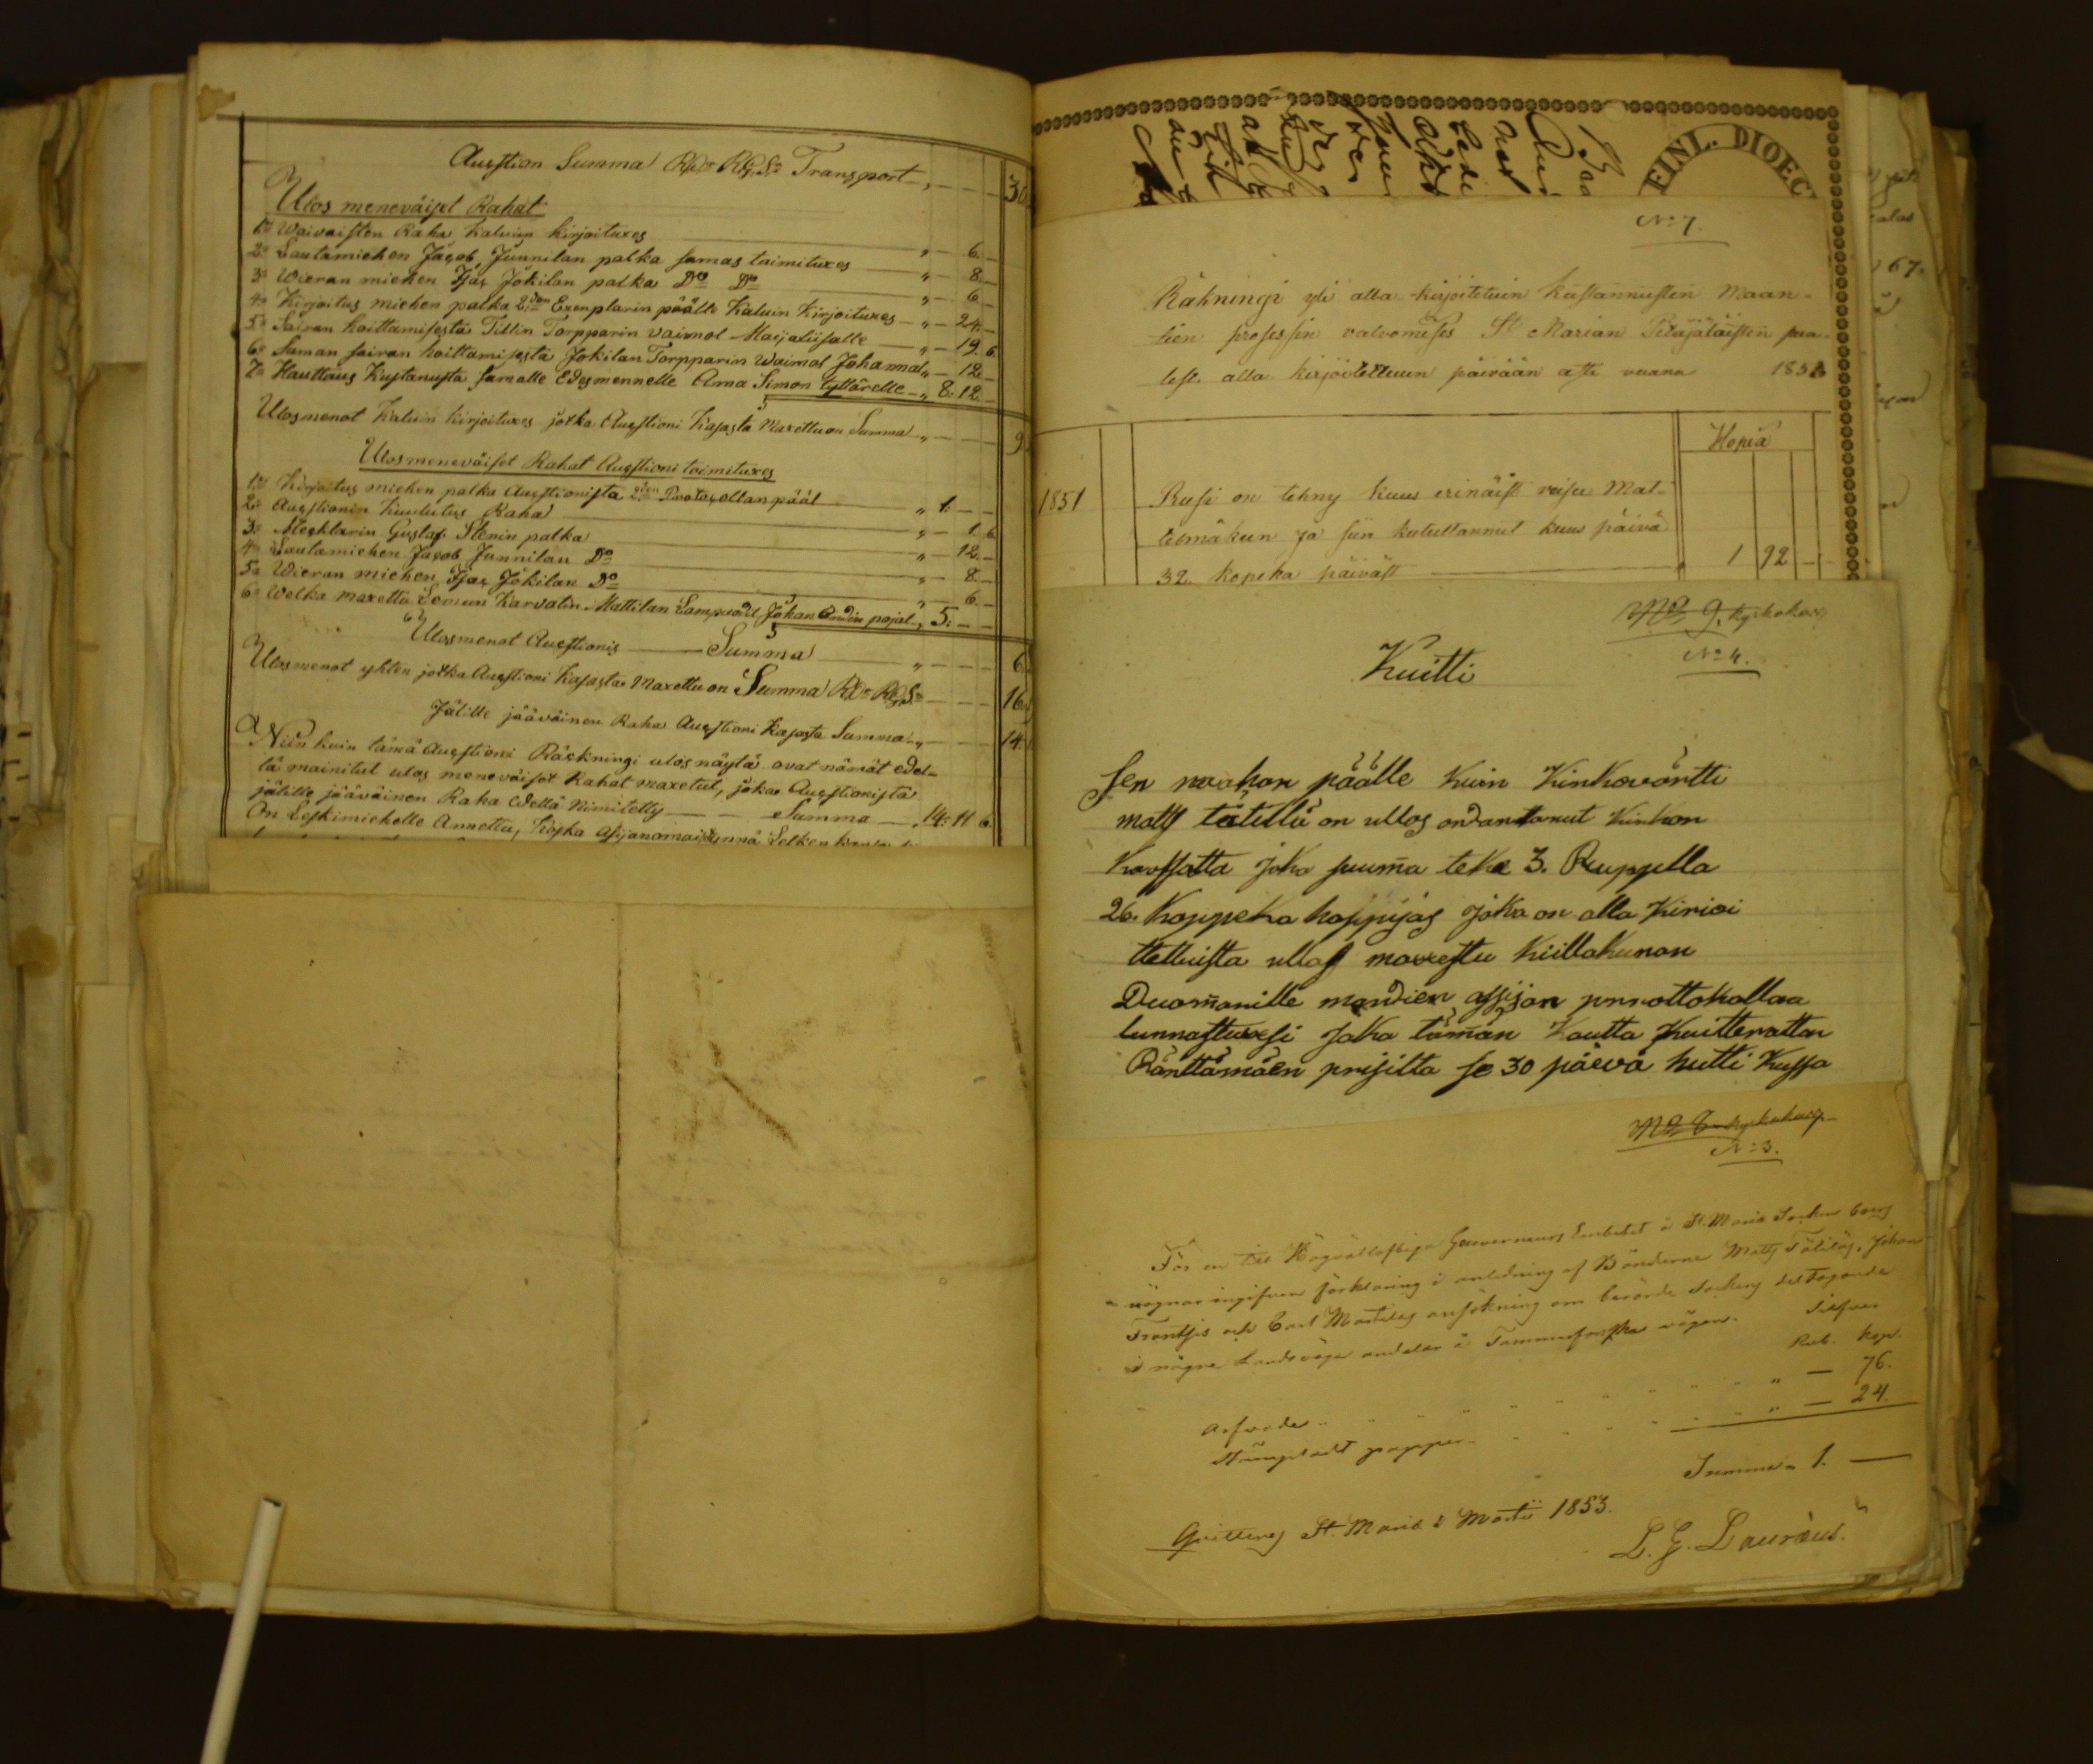 Auction Summa Rd. Rg. Sr. Transport „ — — 30
Ulos menewäiset Rahat
1o Waivaisten Raha kaluin kirjoituxes „ — 6. —
2o Lautamiehen Jacob Junnilan palka samas toimituxes „ — 8. —
3o Wieran miehen Isac Jokilan palka Do Do „ — 6. —
4o Kirjoitus miehen palka 2:den Exenplarin päälle Kaluin Kirjoituxes „ — 24. —
5o Sairan hoittamisesta Tillin Torpparin vaimol Maijaliisalle „ — 19. 6.
6o Saman sairan hoittamisesta Jokilan Torpparin Waimol Johannal „ — 12. —
7o Hauttaus Kustanusta samalle Edesmennelle Anna Simon tyttärelle „ 8. 12. —
Ulosmenot Kaluin kirjoituxes jotka Auctioni Kasasta Maxettu on Summa „ — — 9.
Ulosmenewäiset Rahat Auctioni toimituxes
1o Kirjoitus miehen palka Auctionista 2:den Protocollan pääl „ 1. — —
2o Auctionin Kuulutus Raha „ — 1. 6.
3o Mecklarin Gustaf Stenin palka „ — 12. —
4o Lautamiehen Jacob Junnilan Do „ — 8. —
5o Wieran miehen Isac Jokilan Do „ — 6. —
6o Welka maxettu Lemun Karvatin Mattilan Lampuodil Johan Andin pojal „ 5. — —
Ulosmenot Auctionis — Summa „ — — 6.
Ulosmenot yhten jotka Auctioni Kasasta Maxettu on Summa Rd. Rg. Sr. — — 16.
Jälille jääwäinen Raha Auctioni Kasasta Summa „ — — 14.
Niin kuin tämä Auctioni Räckningi ulos näytä ovat nämät edel-
lä mainitut ulos menewäiset Rahat maxetut, joka Auctionista
jälille jääwäinen Raha Edellä Nimitetty — Summa — 14: 11 6.
On Leskimiehelle Annettu,
FINL. DIOEC
No 7.
Räkningi yli alla kirjoitetuin kustannusten Maan-
tien prosessin valvomises St Marian Pitäjäläisten puo-
lest. alla kirjoitettuun päivään asti vuana 1853
Hopia
1851
Rusi on tehny kuus erinäist reisu Mat-
telmäkeen ja siin kuluttannut kuus päivä
32. kopeka päiväst 1 92
No 9. Kyrkokassa
No 4.
Kuitti
Sen maahan päälle Kuin Kinkovärtti
matts tätellä on ullos andantanut Kinkon
Kassatta joka suuma teke 3. Ruppilla
26. Koppeka hoppijas joka on alla Kirioi
ttettuista ullos maxettu Kiillakunan
Duomanille mandien assijan prrottokollaa
lunnastuxesi joka tämän Kautta Kuitterattan
Ränttämäen prisilta se 30 päivä huttikussa
No 8 Kyrkokassa
No 3.
För en till Högvällofliga Gouverneurs Embetet å St. Maria Sockne boers
vägnar ingifven förklaring i anledning af Bönderne Matts Tätiläs, Johan
Frantsis och Carl Martilas ansökning om berörde Sockens deltagande
i nägre Landsvägs andelar å Tammerforska vägen. Silfver
Rub. Kop.
Arfvode „ — 76.
Stämpladt papper „ — 24.
Summa 1. —
Quitteras St. Maria i Martii 1853.
L. G. Lauræus.
67.